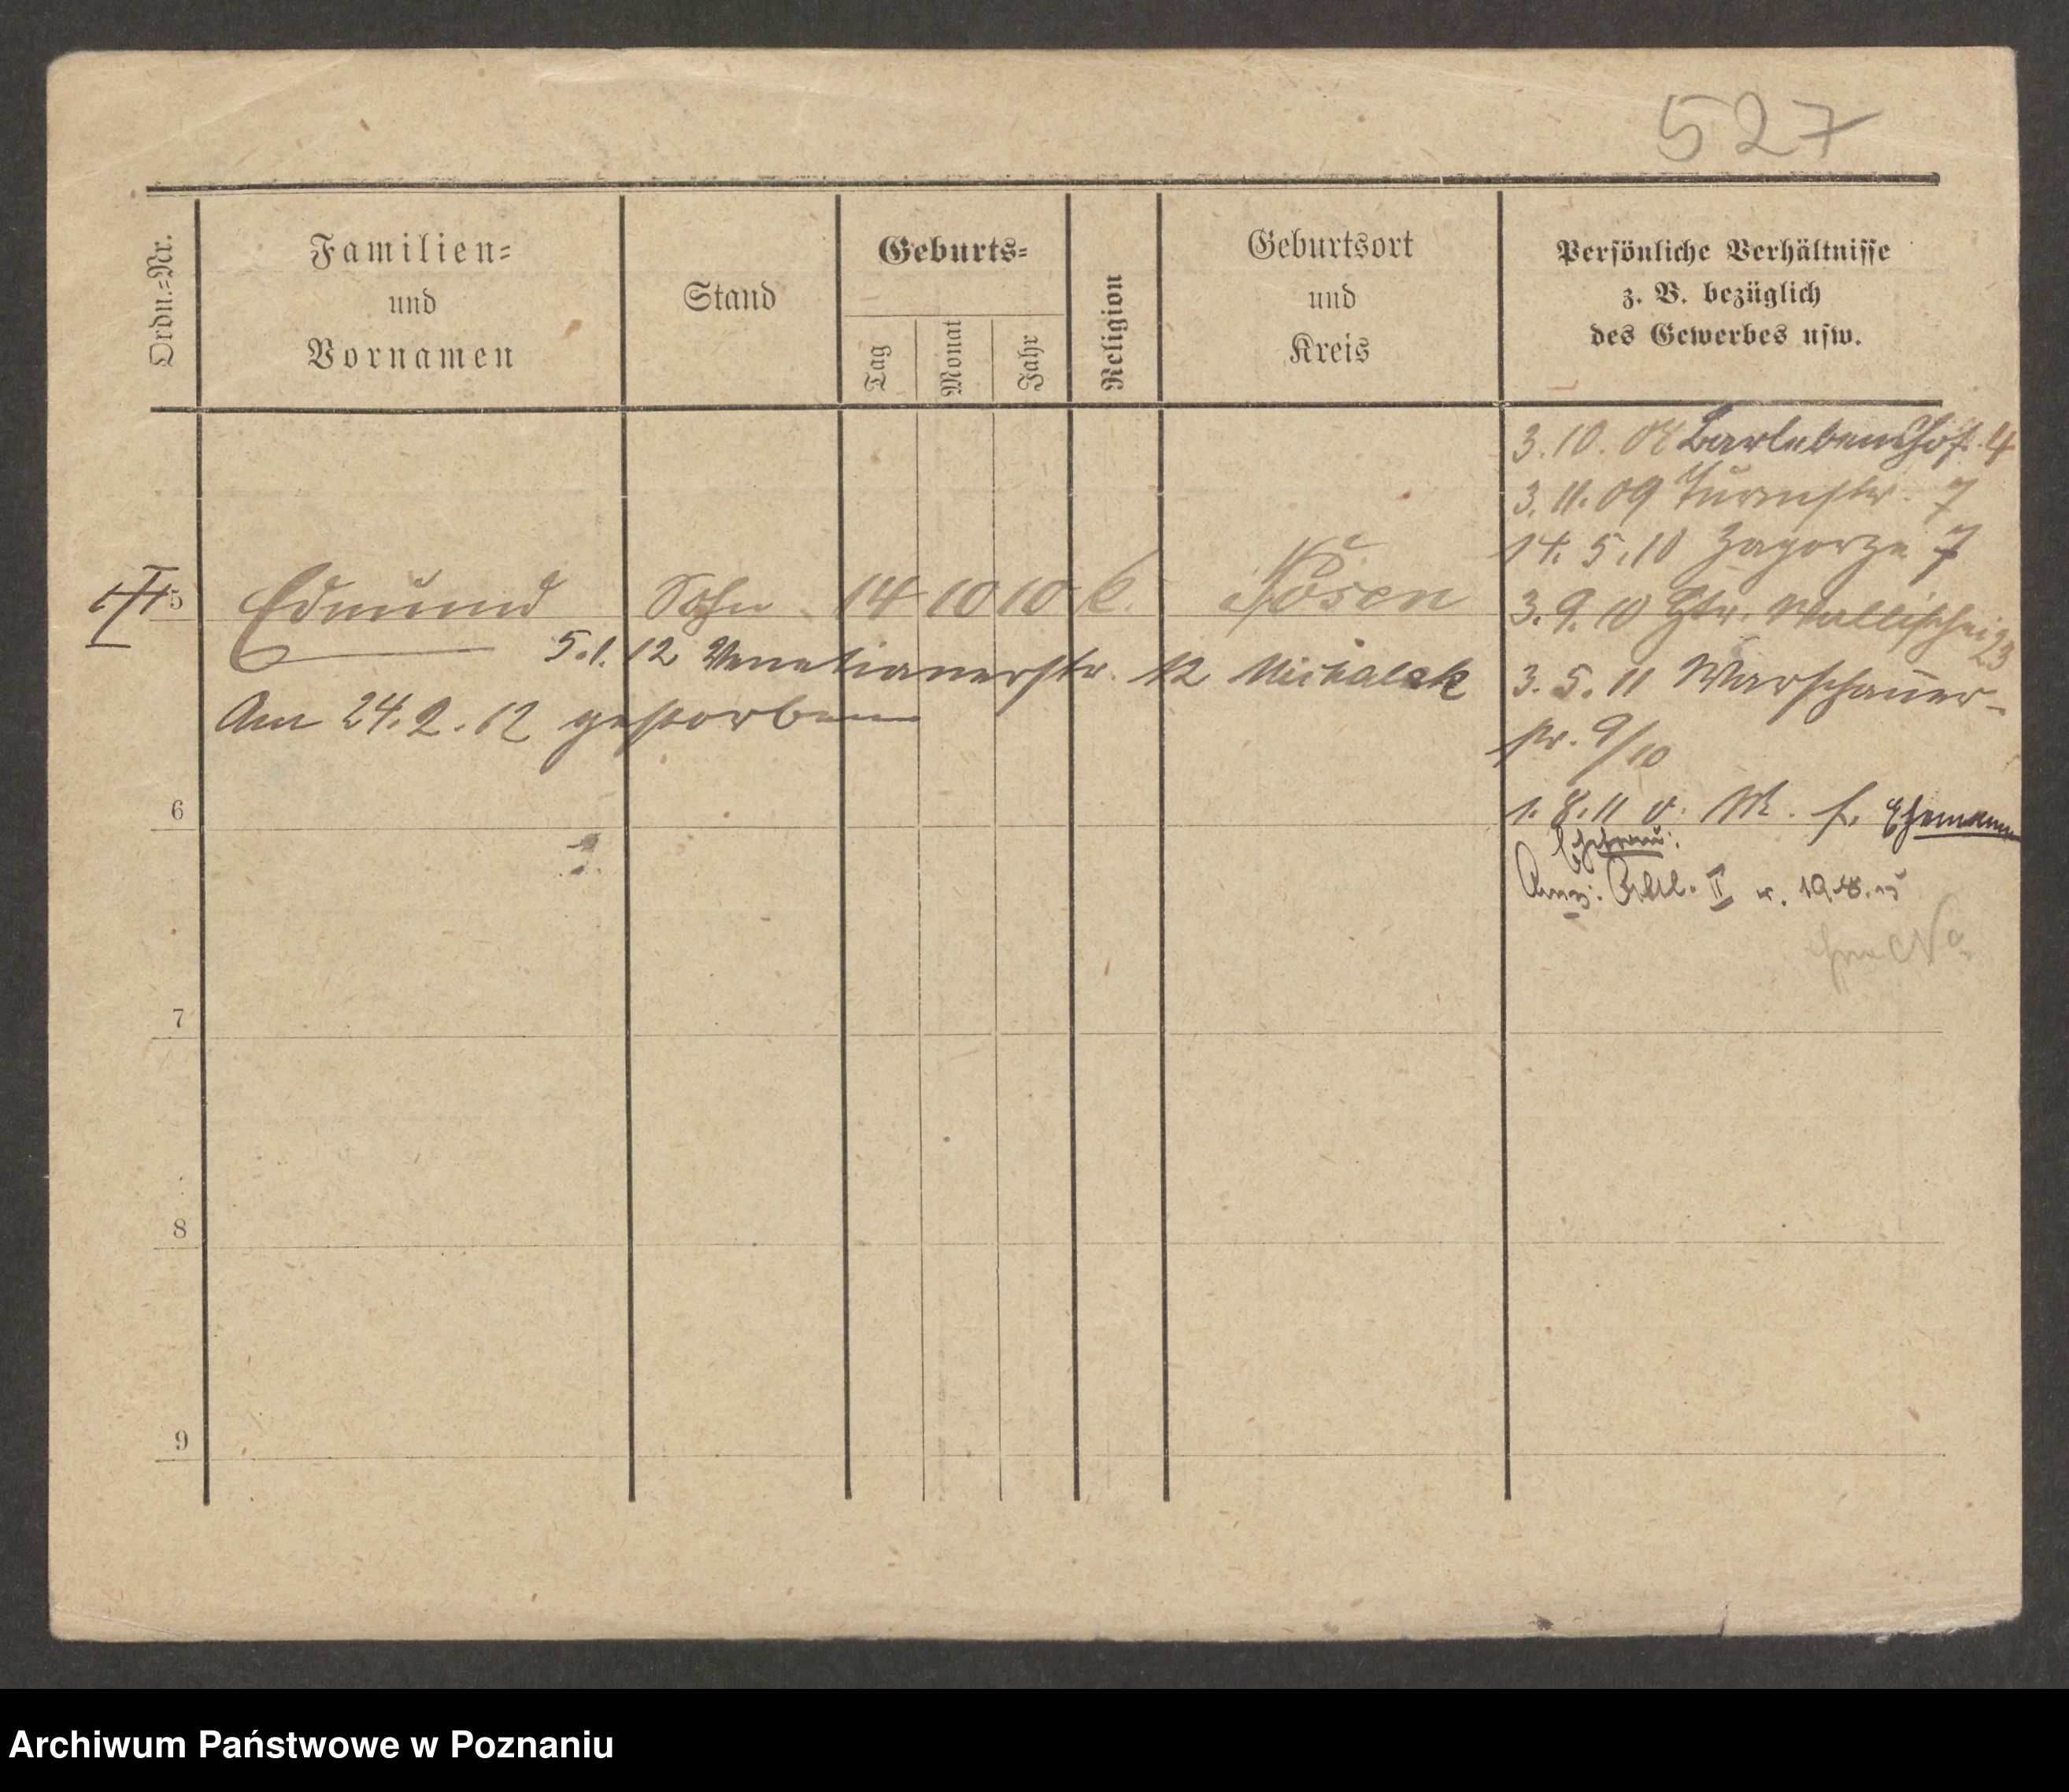 527
Ordn.=Nr.
Familien=
und
Vornamen
Stand
Geburts=
Tag
Monat
Jahr
Religion
Geburtsort
und
Kreis
Persönliche Verhältnisse
z. B. bezüglich
des Gewerbes usw.
3.10.08 Barlebenshof. 4
3.11.09 Turmstr. 7
14.5.10 Zagorze 7
5 Edmund Sohn 14 10 10 k. Posen
3.9.10 Wallischei 23
5.1.12 Venetianerstr. 12 Michalak
3.5.11 Warschauer-
str. 9/10
Am 24.2.12 gestorben
6
1.8.11 v. M. f. Ehemann
Ehefrau:
Abtl. II
7
8
9
Archiwum Państwowe w Poznaniu